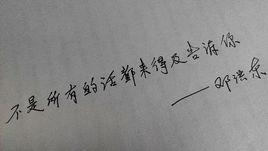 不是所有的话都来得及告诉你
——邓洪东